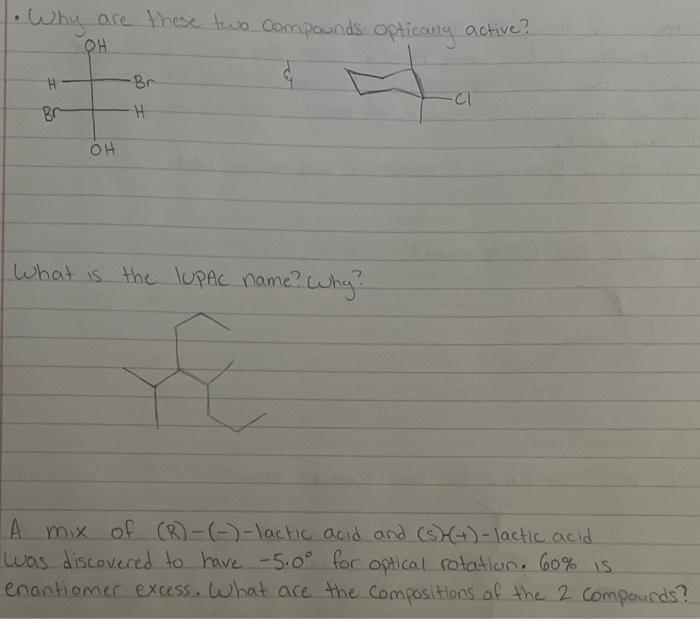 . Why are these two compounds optically active?
OH
H Br
Br H
OH
&
Cl
What is the IUPAC name? Why?
A mix of (R)-(-)-lactic acid and (S)-(+)-lactic acid
was discovered to have -5.0° for optical rotation. 60% is
enantiomer excess. What are the compositions of the 2 compounds?